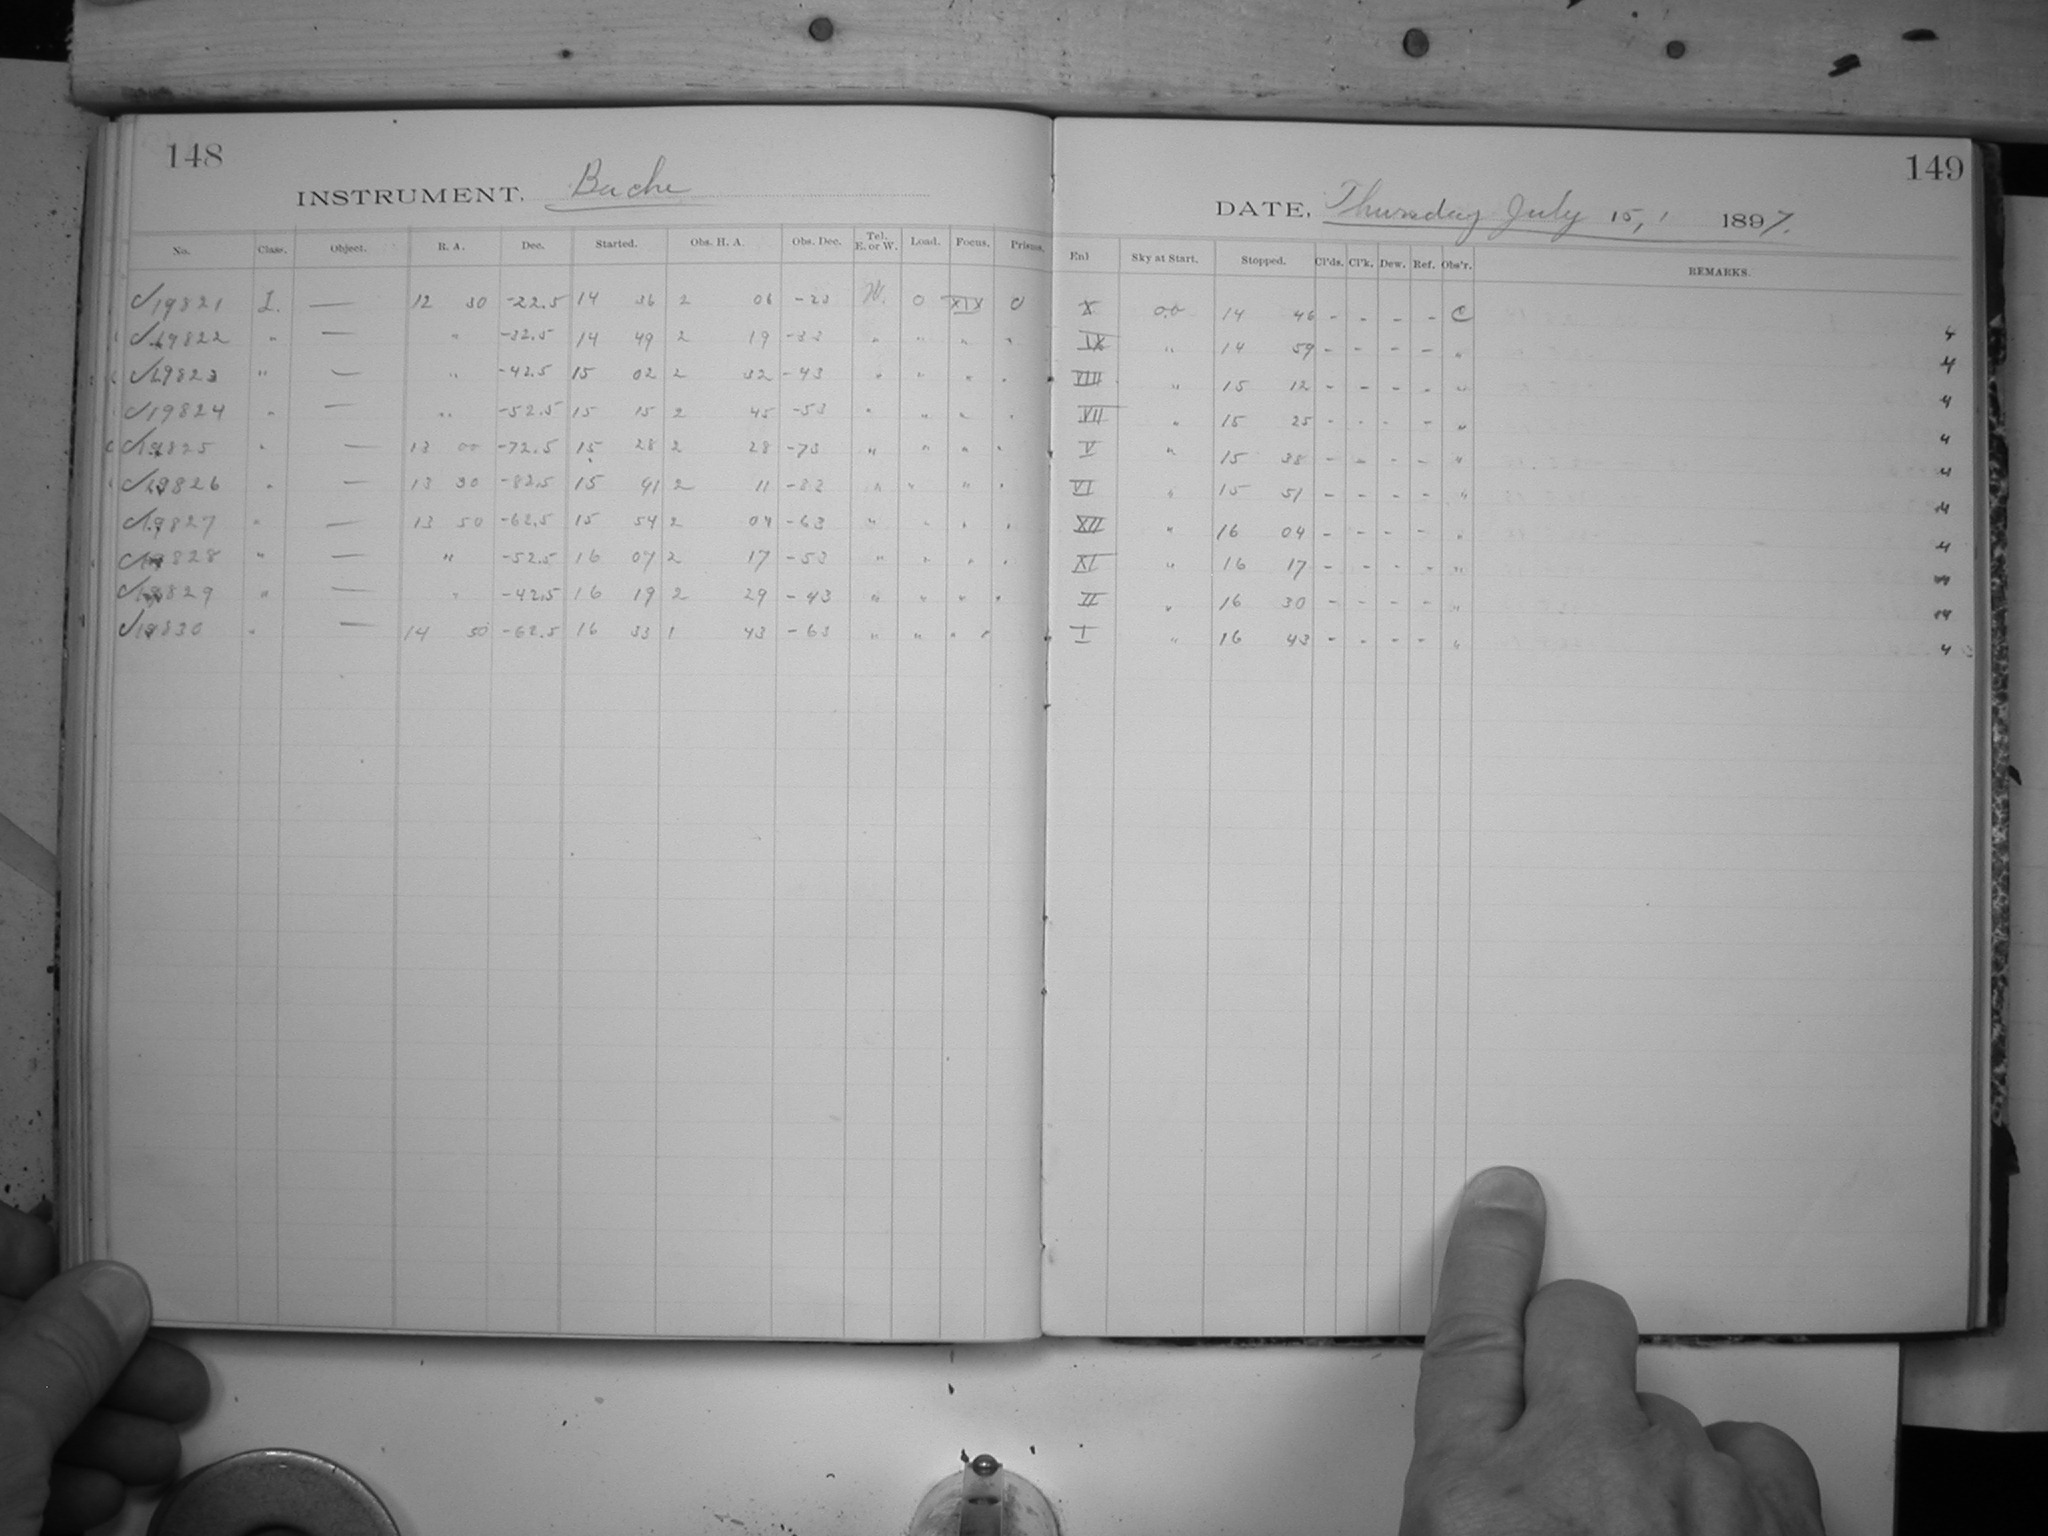 148
INSTRUMENT, Bache
No. Class. Object. R. A. Dec. Started. Obs. H. A. Obs. Dec. Tel. E. or W. Load. Focus. Prisms.
√19821 I. — 12 30 -22.5 14 36 2 06 -23 W. 0 XIX 0
√19822 " — " -32.5 14 49 2 19 -33 " " " "
√19823 " — " -42.5 15 02 2 32 -43 " " " "
√19824 " — " -52.5 15 15 2 45 -53 " " " "
√19825 " — 13 00 -72.5 15 28 2 28 -73 " " " "
√19826 " — 13 30 -82.5 15 41 2 11 -83 " " " "
√19827 " — 13 50 -62.5 15 54 2 04 -63 " " " "
√19828 " — " -52.5 16 07 2 17 -53 " " " "
√19829 " — " -42.5 16 19 2 29 -43 " " " "
√19830 " — 14 50 -62.5 16 33 1 43 -63 " " " "
149
DATE, Thursday July 15, 1897.
Enl Sky at Start. Stopped. Cl'ds. Cl'k. Dew. Ref. Obs'r. REMARKS.
X 00 14 46 - - - - C
IX " 14 59 - - - - " 4
VIII " 15 12 - - - - " 4
VII " 15 25 - - - - " 4
V " 15 38 - - - - " 4
VI " 15 51 - - - - " 4
XII " 16 04 - - - - " 4
XI " 16 17 - - - - " 4
II " 16 30 - - - - "
I " 16 43 - - - - " 4